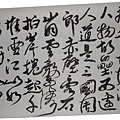 人物故壘西邊
人道是三國周
郎赤壁亂石
驚濤
拍岸捲起千
堆雪江山如